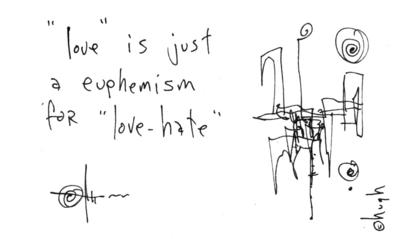 "love" is just
a euphemism
for "love-hate"
©hugh